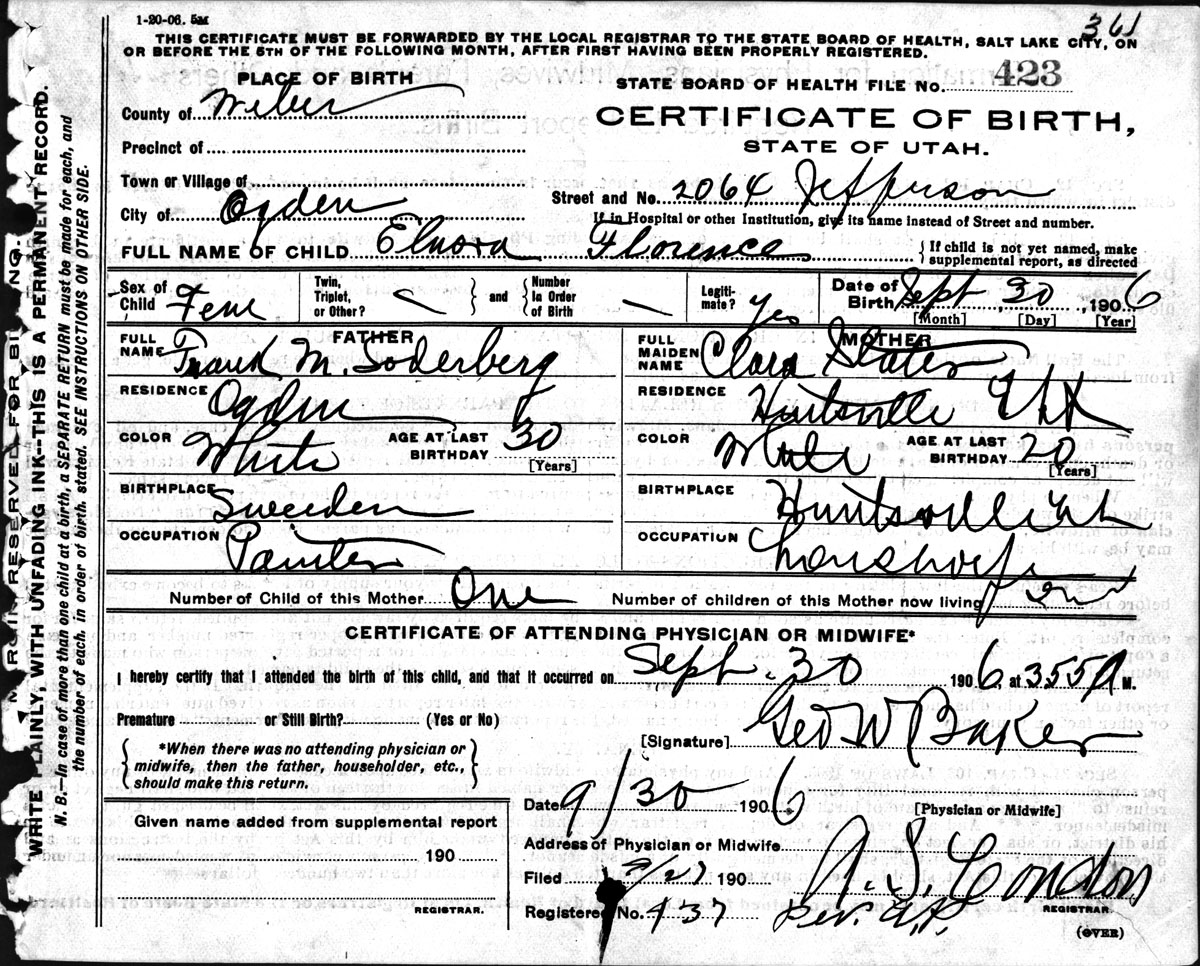 1-20-06. 5M
361
THIS CERTIFICATE MUST BE FORWARDED BY THE LOCAL REGISTRAR TO THE STATE BOARD OF HEALTH, SALT LAKE CITY, ON
OR BEFORE THE 5TH OF THE FOLLOWING MONTH, AFTER FIRST HAVING BEEN PROPERLY REGISTERED.
PLACE OF BIRTH
STATE BOARD OF HEALTH FILE No. 423
County of Weber
CERTIFICATE OF BIRTH,
Precinct of
STATE OF UTAH.
Town or Village of
Street and No. 2064 Jefferson
City of Ogden
If in Hospital or other Institution, give its name instead of Street and number.
FULL NAME OF CHILD Elnora Florence
{ If child is not yet named, make
supplemental report, as directed
Sex of Child Fem
Twin, Triplet, or Other? } and { Number In Order of Birth
Legiti-mate? yes
Date of Birth Sept 30, 1906
[Month] [Day] [Year]
FATHER
FULL NAME Frank M. Soderberg
MOTHER
FULL MAIDEN NAME Clara Slater
RESIDENCE Ogden
RESIDENCE Huntsville Utah
COLOR White
AGE AT LAST BIRTHDAY 30
[Years]
COLOR White
AGE AT LAST BIRTHDAY 20
[Years]
BIRTHPLACE Sweeden
BIRTHPLACE Huntsville Utah
OCCUPATION Painter
OCCUPATION
Number of Child of this Mother One
Number of children of this Mother now living
CERTIFICATE OF ATTENDING PHYSICIAN OR MIDWIFE*
I hereby certify that I attended the birth of this child, and that it occurred on Sept. 30 1906 at 355 A M.
Premature or Still Birth? (Yes or No)
[Signature] Geo W Baker
{ *When there was no attending physician or
midwife, then the father, householder, etc.,
should make this return. }
Date 9/30 1906
[Physician or Midwife]
Given name added from supplemental report
Address of Physician or Midwife
190
Filed 190
REGISTRAR.
Registered No. 437
REGISTRAR.
(OVER)
MARGIN RESERVED FOR BINDING.
WRITE PLAINLY WITH UNFADING INK--THIS IS A PERMANENT RECORD.
N. B.—In case of more than one child at a birth, a SEPARATE RETURN must be made for each, and
the number of each, in order of birth, stated. SEE INSTRUCTIONS ON OTHER SIDE.